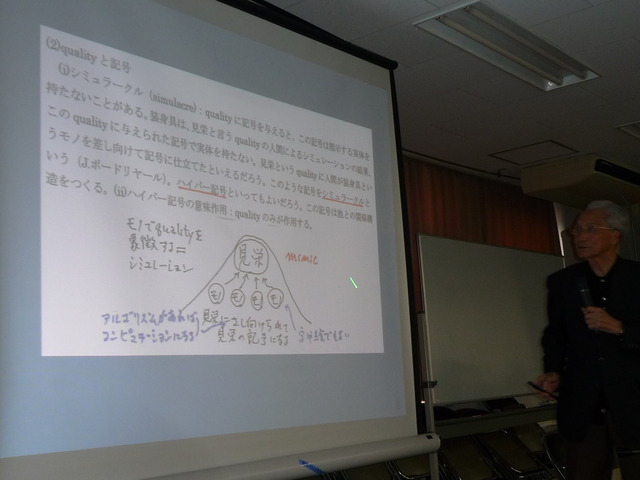 (2)qualityと記号
(i)シミュラークル (simulacre)：qualityに記号を与えると、この記号は指示する実体を
持たないことがある。装身具は、見栄と言うqualityの人間によるシミュレーションの結果、
このqualityに与えられた記号で実体を持たない。見栄というqualityに人間が装身具とい
うモノを差し向けて記号に仕立てたといえるだろう。このような記号をシミュラークルと
いう (J.ボードリヤール)。ハイパー記号といってもよいだろう。この記号は他との関係構
造をつくる。(ii)ハイパー記号の意味作用：qualityのみが作用する。
モノでqualityを
象徴する＝
シミュレーション
見栄
mimic
モノ モノ モノ モノ
アルゴリズムがあれば
コンピュテーションになる
見栄にさし向けられて
見栄の記号になる